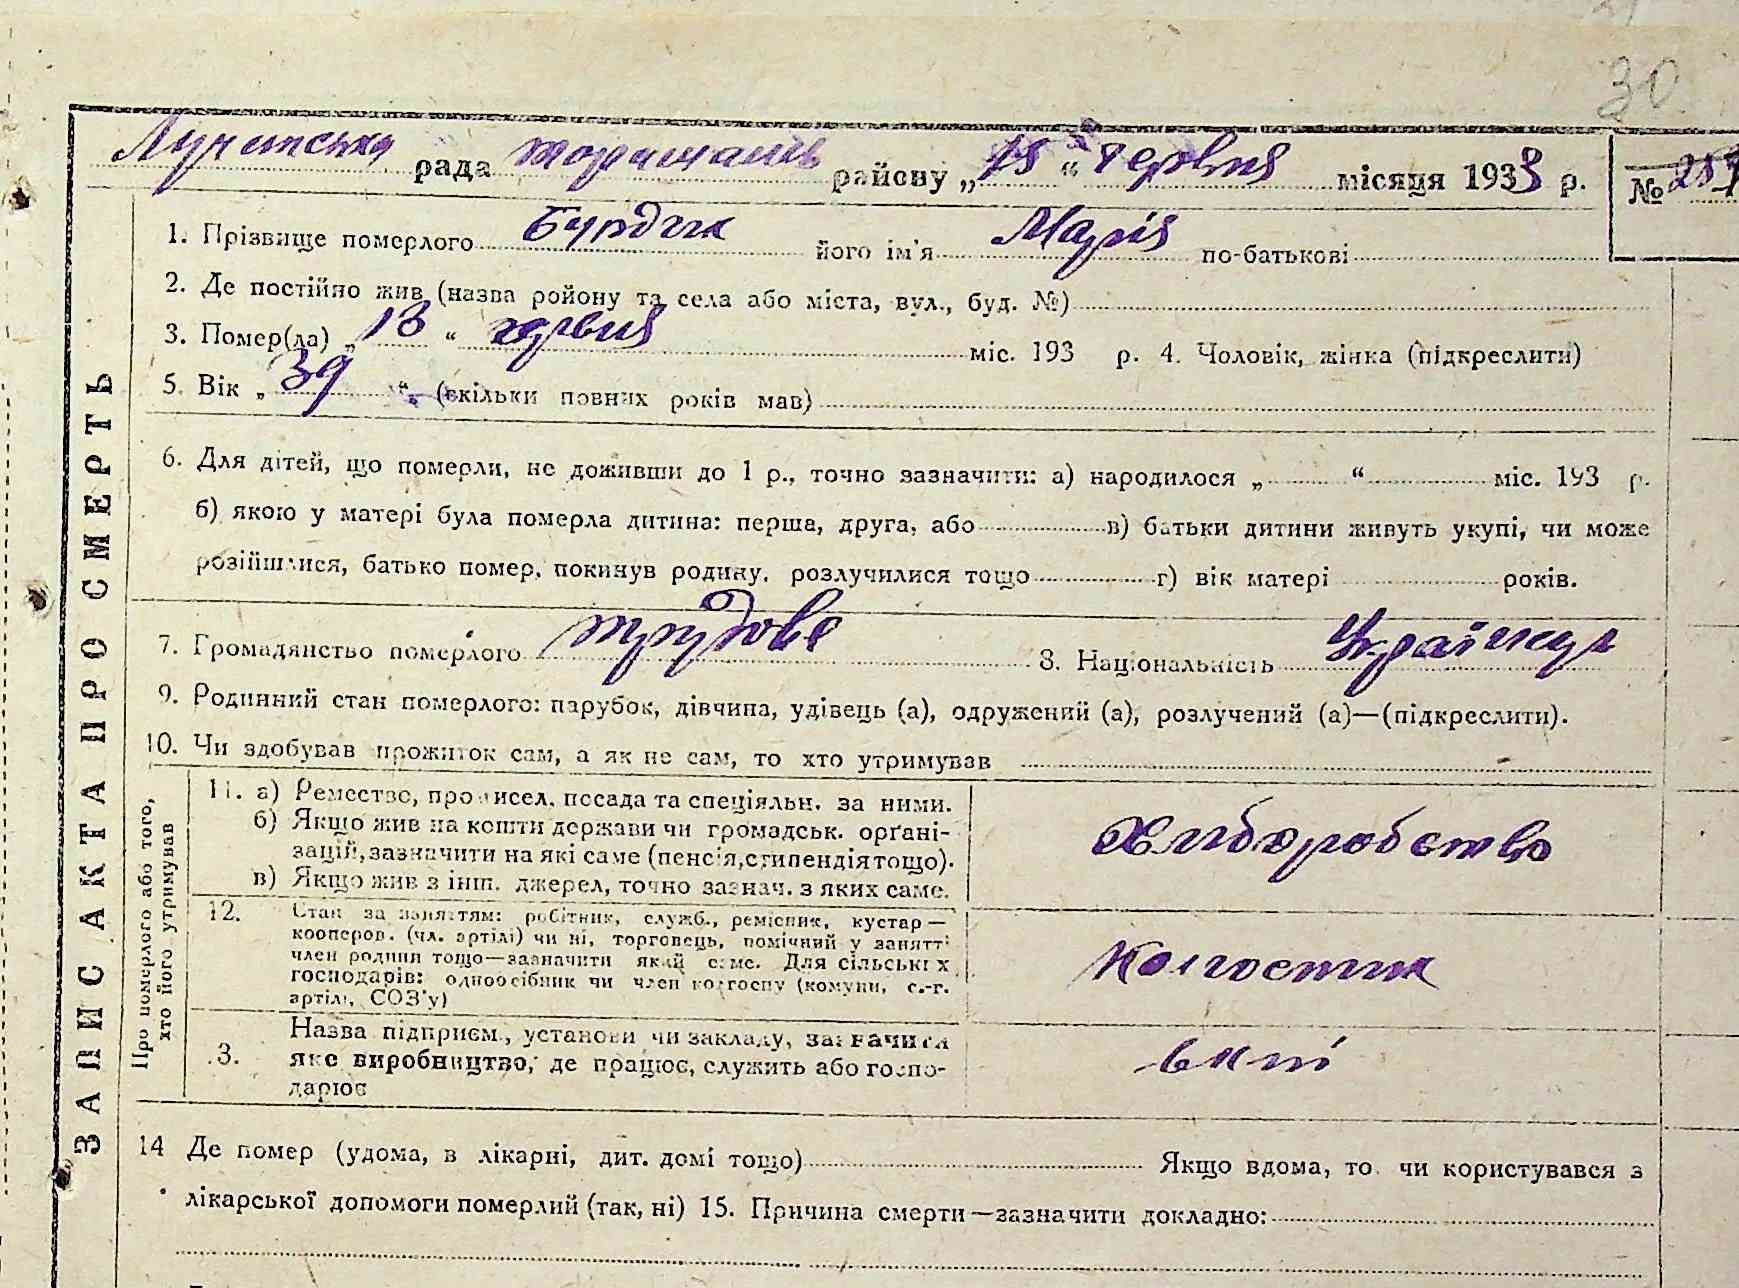 30
рада районну „15“ червня місяця 1933 р. №
1. Прізвище померлого його ім'я Марія по-батькові
2. Де постійно жив (назва ройону та села або міста, вул., буд. №)
3. Помер(ла) „13“ червня міс. 193 р. 4. Чоловік, жінка (підкреслити)
5. Вік „39“ (скільки повних років мав)
6. Для дітей, що померли, не доживши до 1 р., точно зазначити: а) народилося „ “ міс. 193 р.
б) якою у матері була померла дитина: перша, друга, або в) батьки дитини живуть укупі, чи може
розійшлися, батько помер, покинув родину, розлучилися тощо г) вік матері років.
7. Громадянство померлого трудове 8. Національність
9. Родинний стан померлого: парубок, дівчина, удівець (а), одружений (а), розлучений (а)—(підкреслити).
10. Чи здобував прожиток сам, а як не сам, то хто утримував
ЗАПИС АКТА ПРО СМЕРТЬ
Про померлого або того,
хто його утримував
11. а) Ремество, промисел, посада та спеціяльн. за ними.
б) Якщо жив на кошти держави чи громадськ. орґані-
зацій, зазначити на які саме (пенсія, стипендія тощо).
в) Якщо жив з інш. джерел, точно зазнач. з яких саме.
Хлиборобство
12. Стан за заняттям: робітник, служб., ремісник, кустар—
кооперов. (чл. артілі) чи ні, торговець, помічний у занятті
член родини тощо—зазначити який саме. Для сільських
господарів: одноосібник чи член колгоспу (комуни, с.-г.
артілі, СОЗ'у)
Колгостик
3. Назва підприєм., установи чи закладу, зазначити
яке виробництво, де працює, служить або госпо-
дарює
14 Де помер (удома, в лікарні, дит. домі тощо) Якщо вдома, то чи користувався з
лікарської допомоги померлий (так, ні) 15. Причина смерти—зазначити докладно: